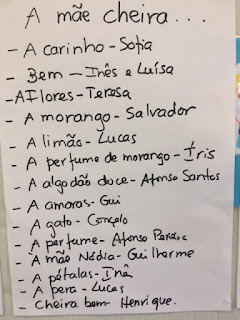 A mãe cheira...
- A carinho - Sofia
- Bem - Inês e Luísa
- A Flores - Teresa
- A morango - Salvador
- A limão - Lucas
- A perfume de morango - Íris
- A algodão doce - Afonso Santos
- A amoras - Gui
- A gato - Gonçalo
- A perfume - Afonso Pereira
- A mãe Nádia - Guilherme
- A pétalas - Inês
- A pera - Lucas
- Cheira bem - Henrique.